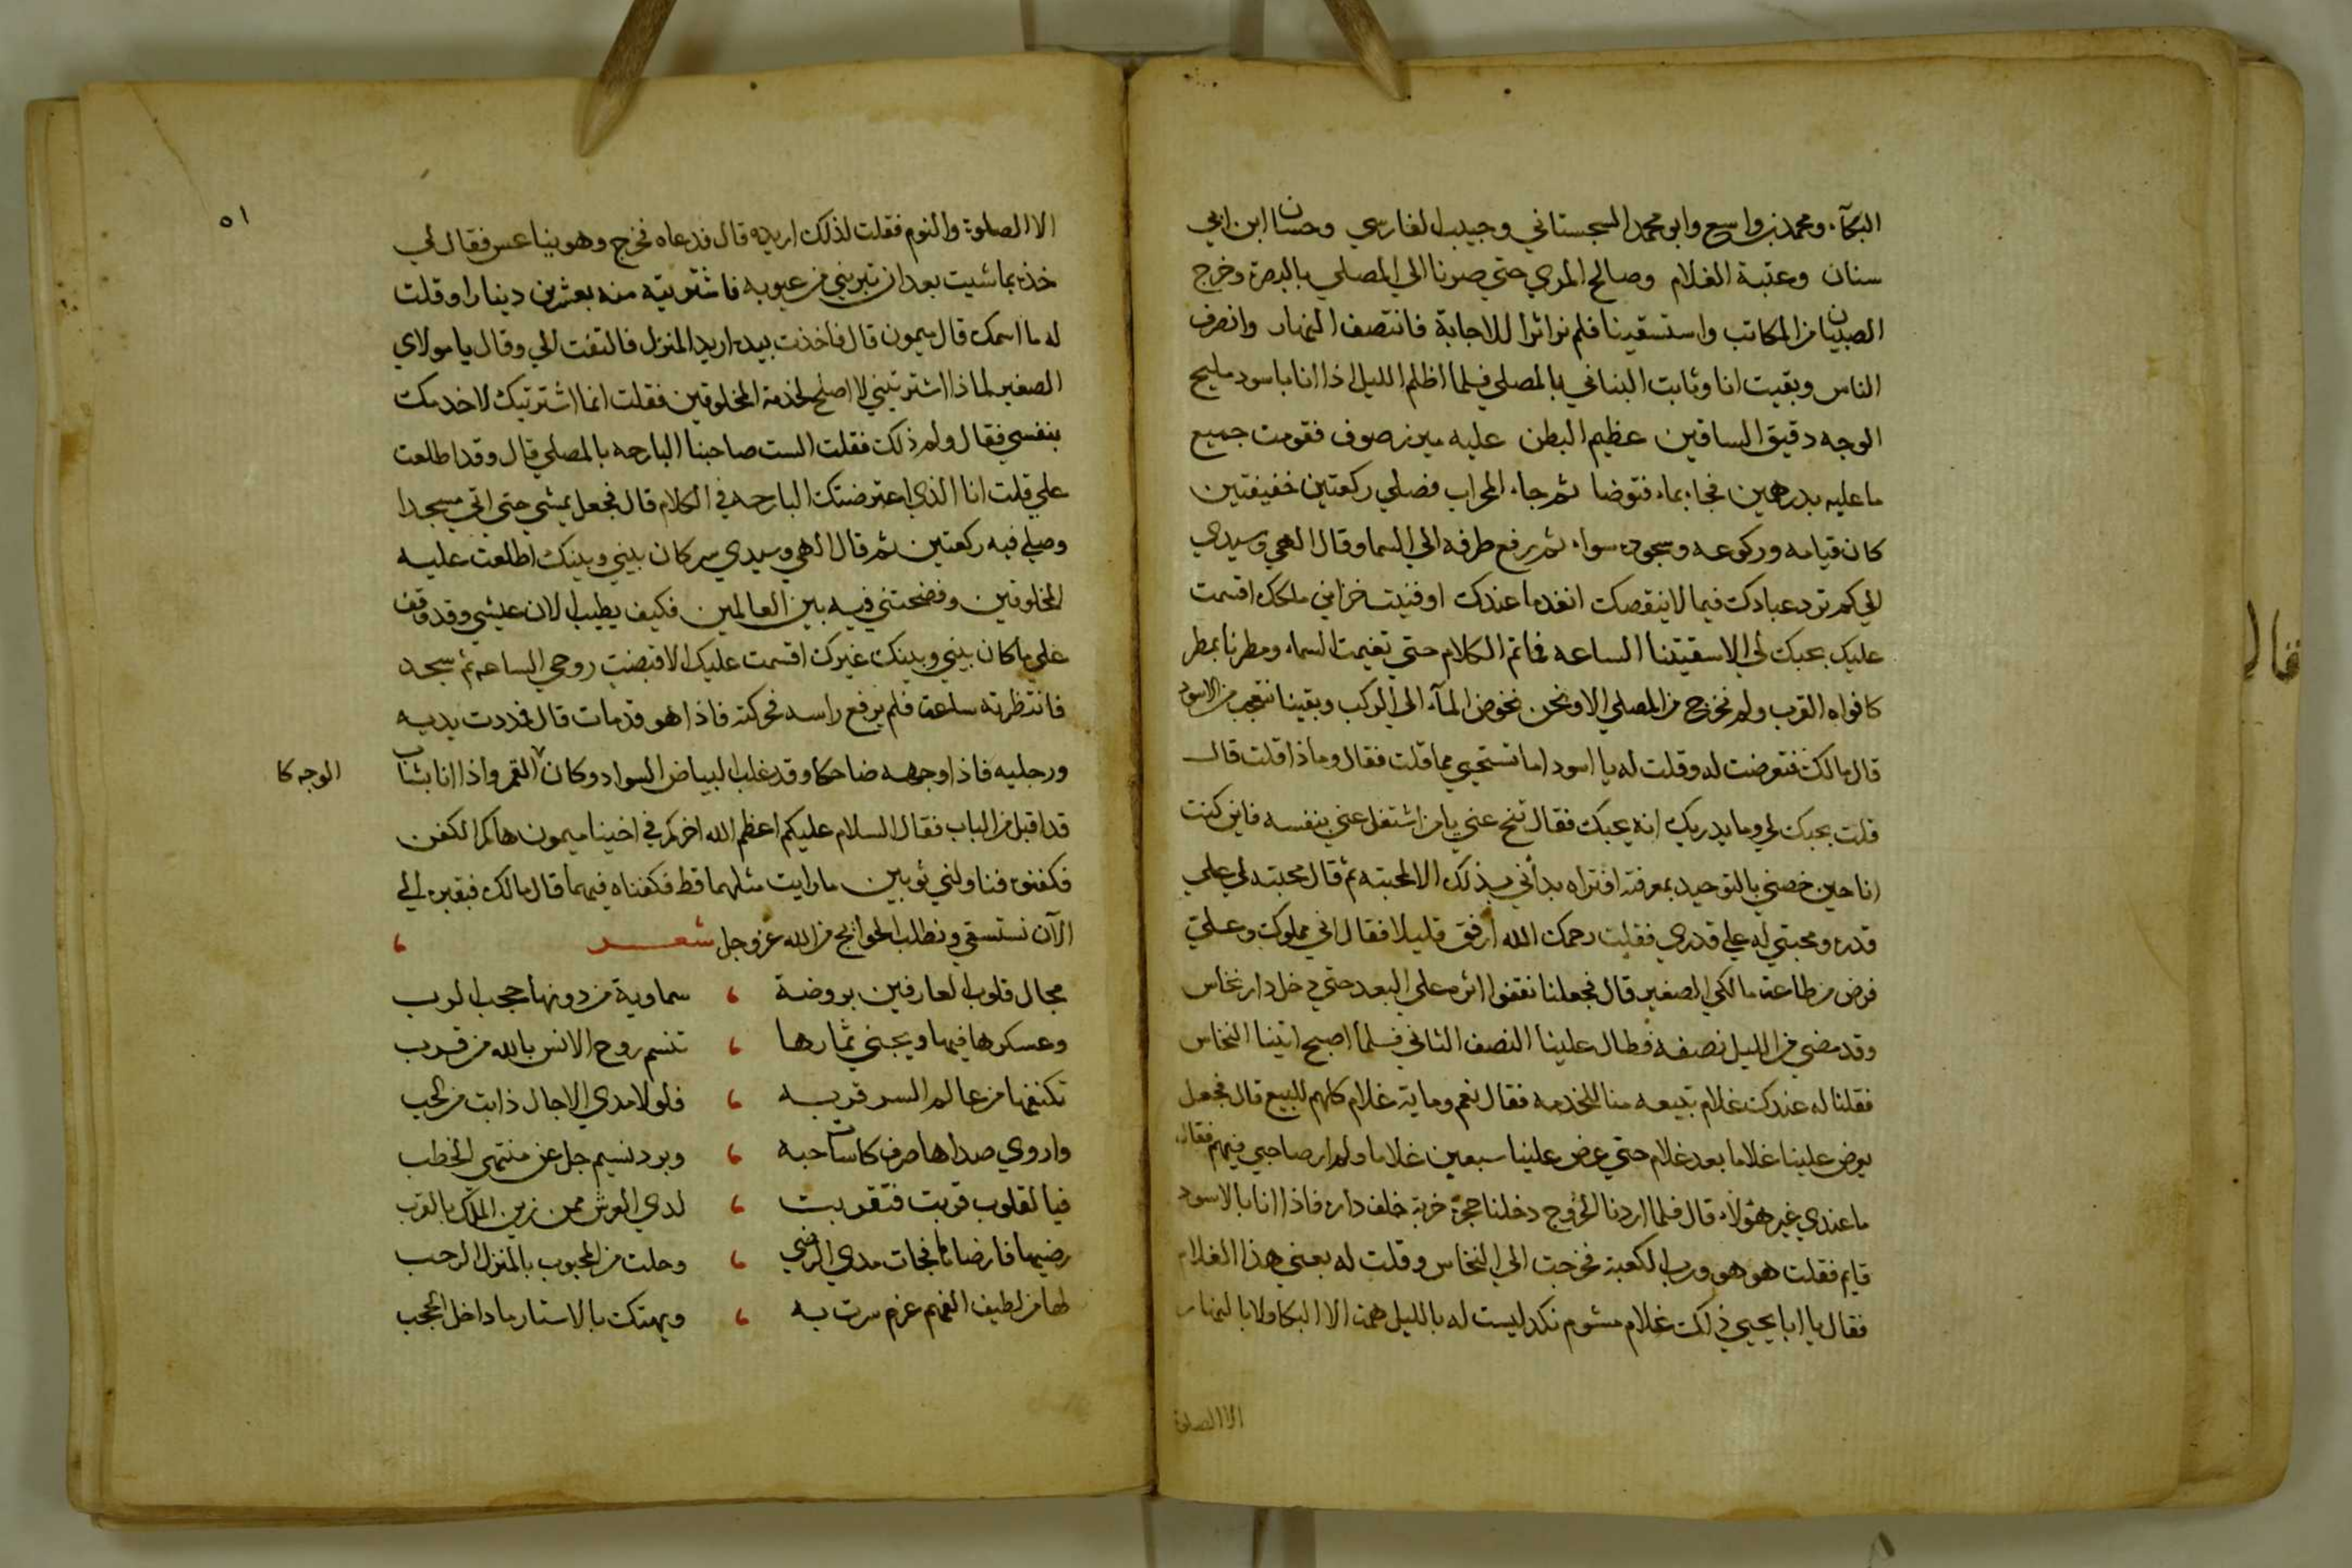 البكآء ومحمد بن واسع وابو محمد السجستاني وحبيب الفارسي وحسان ابن ابي
سنان وعتبة الغلام وصالح المري حتي صرنا الي المصلي بالبصرة وخرج
الصبيان من المكاتب واستسقينا فلم نر اثرا للاجابة فانتصف النهار وانصرف
الناس وبقيت انا وثابت البناني بالمصلي فلما اظلم الليل اذا انا باسود مليح
الوجه دقيق الساقين عظيم البطن عليه ميزر صوف فقومت جميع
ما عليه بدرهمين فجاء بماء فتوضا ثم جاء المحراب فصلي ركعتين خفيفتين
كان قيامه وركوعه وسجوده سواء ثم رفع طرفه الي السما وقال الهي وسيدي
الي كم ترد عبادك فيما لا ينقصك انفد ما عندك او فنيت خزاين ملكك اقسمت
عليك بحبك لي الا سقيتنا الساعه فما تم الكلام حتي تغيمت السماء ومطرنا بمطر
كافواه القرب ولم نخرج من المصلي الا ونحن نخوض المآء الي الركب وبقينا نتعجب من الاسود
قال مالك فتعرضت له وقلت له يا اسود اما تستحيي مما قلت فقال وماذا قلت قال
قلت بحبك لي وما يدريك انه يحبك فقال تنح عني يا من اشتغل عني بنفسه فاين كنت
انا حين خصني بالتوحيد بمعرفته افتراه بدأني بذلك الا لمحبته ثم قال محبته لي علي
قدره ومحبتي له علي قدري فقلت رحمك الله ارفق قليلا فقال اني مملوك وعلي
فرض من طاعة مالكي الصغير قال فجعلنا نقفوا اثره علي البعد حتي دخل دار نخاس
وقد مضي من الليل نصفه فطال علينا النصف الثاني فلما اصبح اتينا النخاس
فقلنا له عندك غلام تبيعه منا للخدمه فقال نعم وماية غلام كلهم للبيع قال فجعل
يعرض علينا غلاما بعد غلام حتي عرض علينا سبعين غلاما ولم ار صاحبي فيهم فقال
ما عندي غير هؤلاء قال فلما اردنا الخروج دخلنا حجرة خربة خلف داره فاذا انا بالاسود
قايم فقلت هو هو ورب الكعبة فخرجت الي النخاس وقلت له بعني هذا الغلام
فقال يا ابا يحيي ذلك غلام مشوم نكد ليست له بالليل همة الا البكا ولا بالنهار
الا الصلوة
٥١
الا الصلوة والنوم فقلت لذلك اريده قال فدعاه فخرج وهو يتناعس فقال لي
خذه بما شيت بعد ان تبريني من عيوبه فاشتريته منه بعشرين دينارا وقلت
له ما اسمك قال ميمون قال فاخذت بيده اريد المنزل فالتفت الي وقال يا مولاي
الصغير لماذا اشتريتني لا اصلح لخدمة المخلوقين فقلت انما اشتريتك لاخدمك
بنفسي فقال ولم ذلك فقلت الست صاحبنا البارحه بالمصلي قال وقد اطلعت
علي قلت انا الذي اعترضتك البارحه في الكلام قال فجعل يمشي حتي اتي مسجدا
وصلي فيه ركعتين ثم قال الهي وسيدي سر كان بيني وبينك اطلعت عليه
المخلوقين وفضحتني فيه بين العالمين فكيف يطيب الان عيشي وقد وقف
علي ما كان بيني وبينك غيرك اقسمت عليك الا قبضت روحي الساعه ثم سجد
فانتظرته ساعة فلم يرفع راسه فحركته فاذا هو قد مات قال فمددت يديه
ورجليه فاذا وجهه ضاحكا وقد غلب البياض السواد وكان القمر واذا انا بشاب
الوجه كا
قد اقبل من الباب فقال السلام عليكم اعظم الله اجركم في اخينا ميمون هاكم الكفن
فكفنوه فناولني ثوبين ما رايت مثلهما قط فكفناه فيهما قال مالك فبقبره الي
الآن نستسقي ونطلب الحوائج من الله عز وجل شعـــر
مجال قلوب العارفين بروضة ، سماوية من دونها حجب الرب
وعسكرها فيها ويجني ثمارها ، تنسم روح الانس بالله من قرب
تكنفها من عالم السر قربه ، فلولا مدي الاجال ذابت من الحب
واروي صداها صرف كاسات حبه ، وبرد نسيم جل عن منتهي الخطب
فيا لقلوب قربت فتقربت ، لدي العرش ممن زين الملك بالقرب
رضيها فارضاها فحات مدي الرضي ، وحلت من المحبوب بالمنزل الرحب
لها من لطيف الفهم عزم سرت به ، ويهتك بالاستار ما داخل الحجب